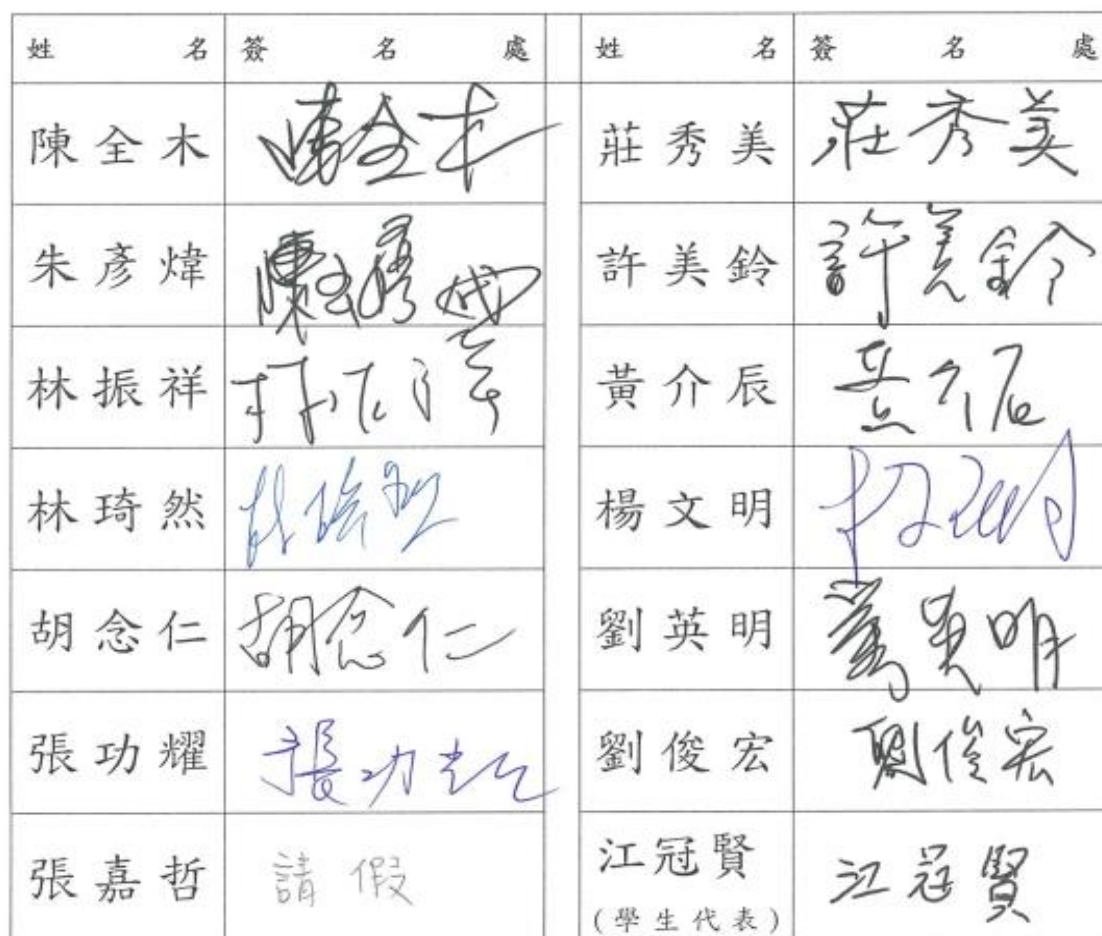 姓 名 簽 名 處 姓 名 簽 名 處
陳全木 陳全木 莊秀美 莊秀美
朱彥煒 代 許美鈴 許美鈴
林振祥 林振祥 黃介辰 黃介辰
林琦然 楊文明 楊文明
胡念仁 胡念仁 劉英明 劉英明
張功耀 張功耀 劉俊宏 劉俊宏
張嘉哲 請假 江冠賢 江冠賢
(學生代表)